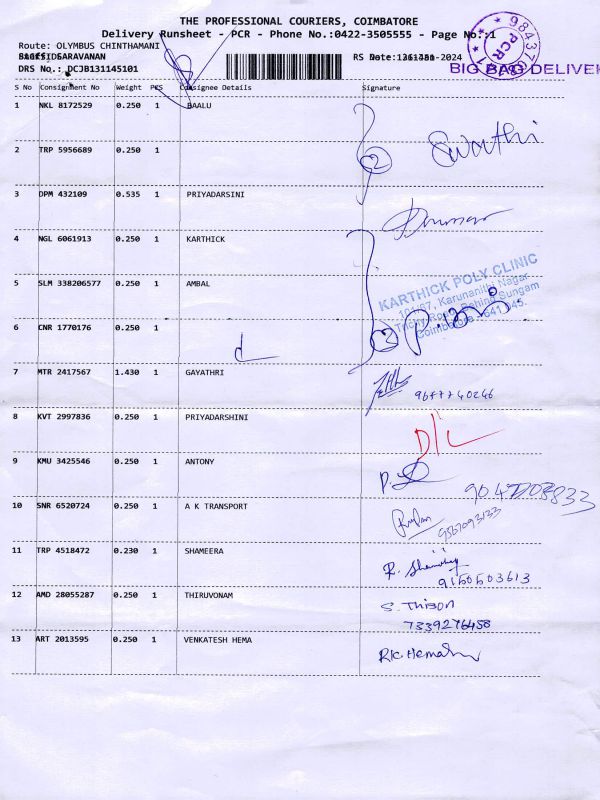 THE PROFESSIONAL COURIERS, COIMBATORE
Delivery Runsheet - PCR - Phone No.:0422-3505555 - Page No.:1
Route: OLYMBUS CHINTHAMANI
SARAVANAN
RS Date: -2024
DRS No.: DCJB131145101
PCR
BIG BAG DELIVER
S No Consignment No Weight PCS Consignee Details Signature
1 NKL 8172529 0.250 1 BAALU
Swathi
2 TRP 5956689 0.250 1
2
3 DPM 432109 0.535 1 PRIYADARSINI
4 NGL 6061913 0.250 1 KARTHICK
KARTHICK POLY CLINIC
101/67, Karunanithi Nagar
5 SLM 338206577 0.250 1 AMBAL
Trichy Road, Behind Sungam
Coimbatore - 641 045.
6 CNR 1770176 0.250 1
2
7 MTR 2417567 1.430 1 GAYATHRI
9647740246
8 KVT 2997836 0.250 1 PRIYADARSHINI
D/L
9 KMU 3425546 0.250 1 ANTONY
10 SNR 6520724 0.250 1 A K TRANSPORT
9567093133
11 TRP 4518472 0.230 1 SHAMEERA
9150503613
12 AMD 28055287 0.250 1 THIRUVONAM
S. Thison
7339276458
13 ART 2013595 0.250 1 VENKATESH HEMA
RK. Hema